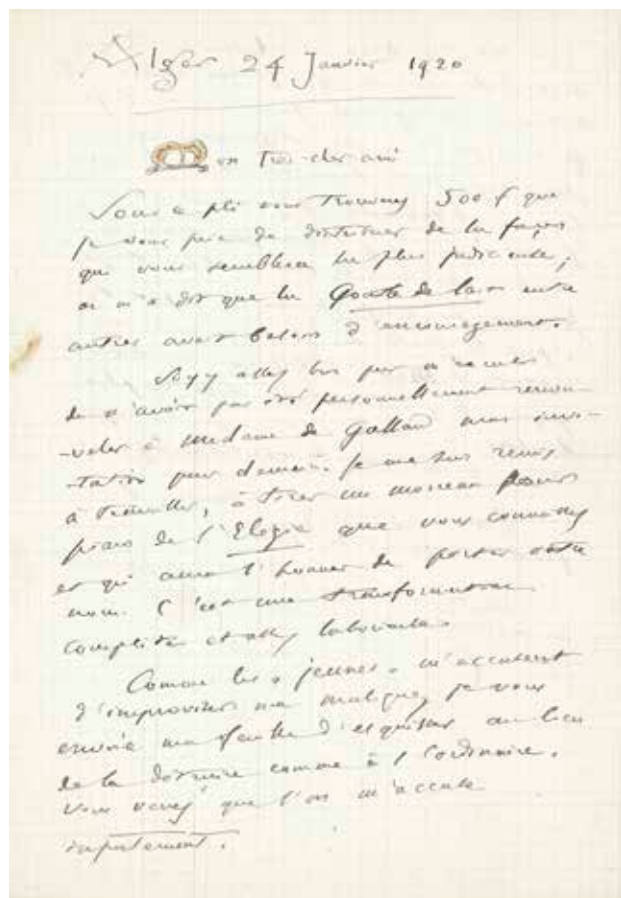 Alger 24 Janvier 1920
Mon très-cher ami
Sous ce pli vous trouverez 500 f que
je vous prie de distribuer de la façon
qui vous semblera la plus judicieuse ;
on m'a dit que la Goutte de lait entre
autres avait besoin d'encouragement.
Soyez assez bon pour m'excuser
de n'avoir pas été personnellement renou-
-veler à Madame de Galland mon invi-
-tation pour demain. Je me suis remis
à travailler, à tirer un morceau pour
piano de l'Elégie que vous connaissez
et qui aura l'honneur de porter votre
nom. C'est une transformation
complète et assez laborieuse.
Comme les « jeunes » m'accusent
d'improviser ma musique, je vous
envoie ma feuille d'esquisses au lieu
de la détruire comme à l'ordinaire.
Vous verrez que l'on m'accuse
injustement.